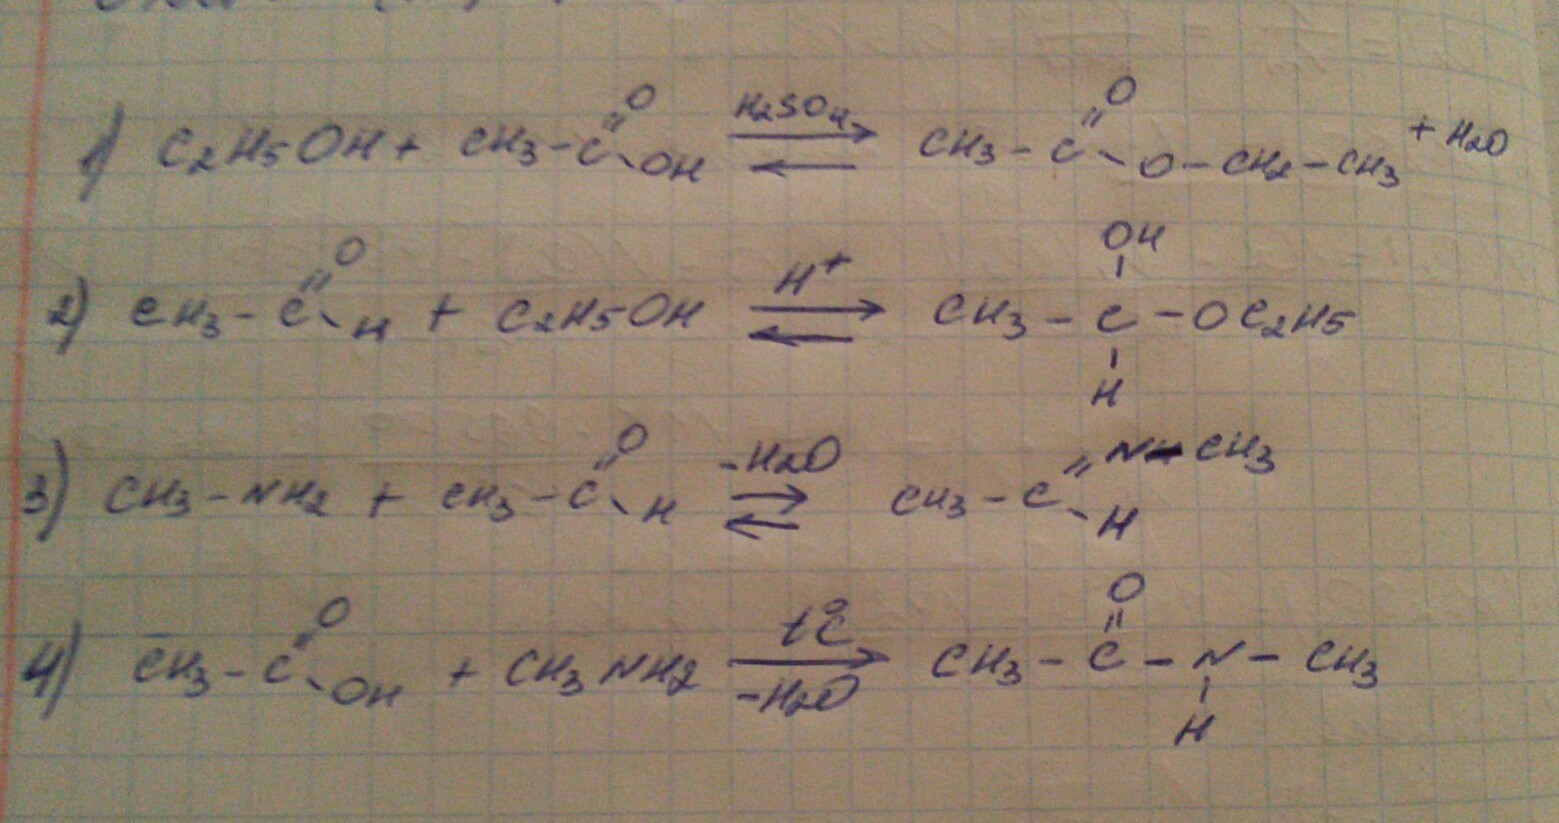 1) C2H5OH + CH3-C(=O)-OH ⇌ (H2SO4) CH3-C(=O)-O-CH2-CH3 + H2O
2) CH3-C(=O)-H + C2H5OH ⇌ (H+) CH3-C(OH)(H)-OC2H5
3) CH3-NH2 + CH3-C(=O)-H ⇌ (-H2O) CH3-C(=N-CH3)-H
4) CH3-C(=O)-OH + CH3NH2 → (t°C, -H2O) CH3-C(=O)-N(H)-CH3